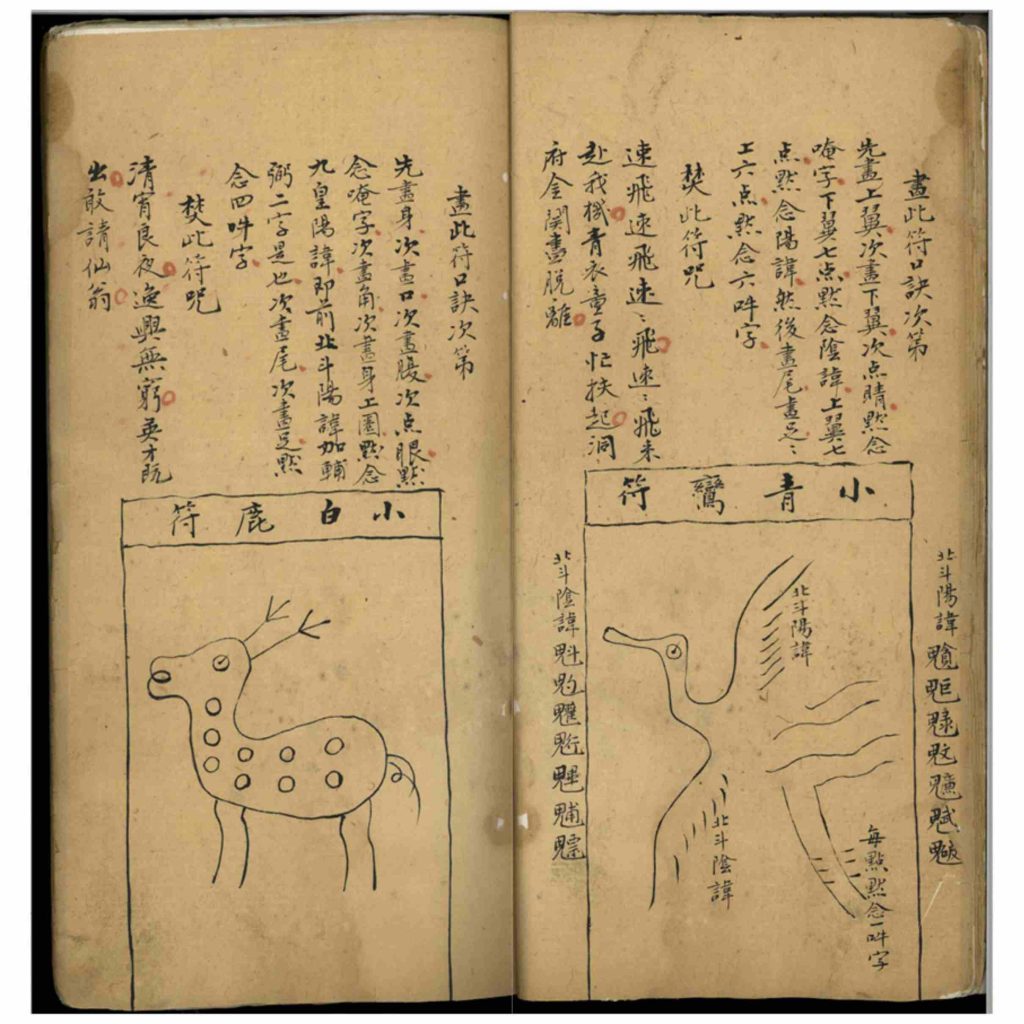 畫此符口訣次第
先畫上翼次畫下翼次点睛默念
唵字下翼七点默念陰諱上翼七
点默念陽諱然後畫尾畫足〻
工六点默念六吽字
焚此符咒
速飛速飛速〻飛速〻飛来
赴我機青衣童子忙扶起洞
府金関盡脱離
小青鸞符
北斗陽諱
北斗陽諱
北斗陰諱
每點默念一吽字
北斗陰諱
畫此符口訣次第
先畫身次畫口次畫腹次点眼默
念唵字次畫角次畫身上圈默念
九皇陽諱即前北斗陽諱加輔
弼二字是也次畫尾次畫足默
念四吽字
焚此符咒
清宵良夜逸興無窮英才既
出敢請仙翁
小白鹿符